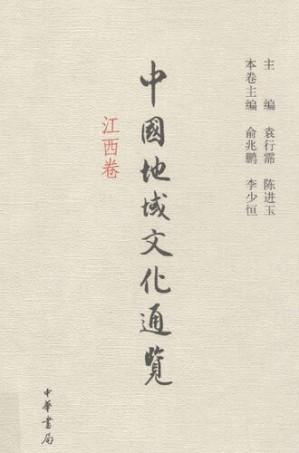 主 编 袁行霈 陈进玉
本卷主编 俞兆鹏 李少恒
中國地域文化通覧
江西卷
中華書局